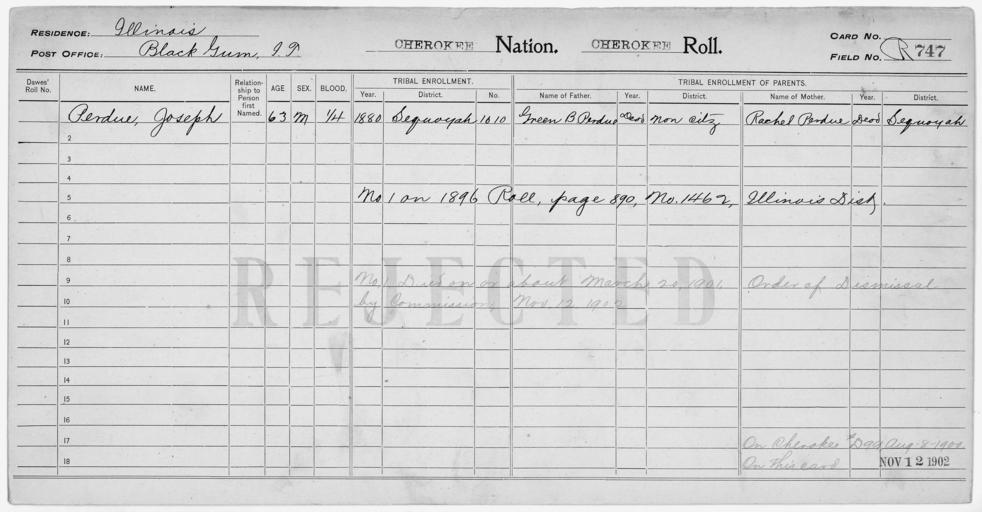 RESIDENCE: Illinois
POST OFFICE: Black Gum, I.T.
CHEROKEE Nation. CHEROKEE Roll.
CARD NO.
FIELD NO. R 747
Dawes' Roll No. NAME. Relationship to Person first Named. AGE SEX. BLOOD. TRIBAL ENROLLMENT. TRIBAL ENROLLMENT OF PARENTS.
Year. District. No. Name of Father. Year. District. Name of Mother. Year. District.
Perdue, Joseph 63 M 1/4 1880 Sequoyah 1010 Green B Perdue Dead non citz Rachel Perdue Dead Sequoyah
2
3
4
5 No 1 on 1896 Roll, page 890, No. 1462, Illinois Dist.
6
7
8
REJECTED
9 No 1 Died on or about March 20, 1901. Order of Dismissal
10 by Commission Nov. 12 1902
11
12
13
14
15
16
17 On Cherokee Aug. 8-1900
18 On this card NOV 12 1902